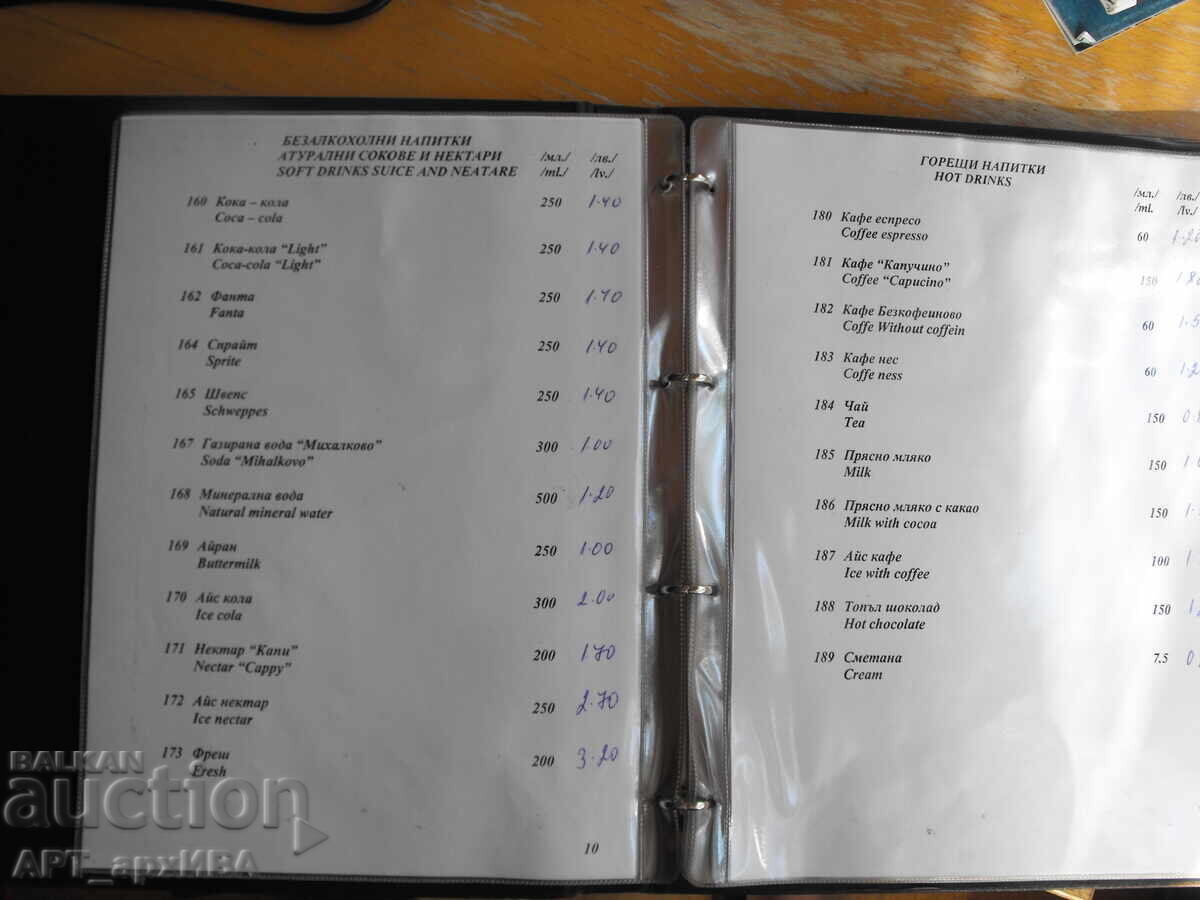 БЕЗАЛКОХОЛНИ НАПИТКИ
АТУРАЛНИ СОКОВЕ И НЕКТАРИ /мл./ /лв./
SOFT DRINKS SUICE AND NEATARE /ml./ /lv./
160 Кока – кола 250 1.40
Coca – cola
161 Кока-кола “Light” 250 1.40
Coca-cola “Light”
162 Фанта 250 1.40
Fanta
164 Спрайт 250 1.40
Sprite
165 Швепс 250 1.40
Schweppes
167 Газирана вода “Михалково” 300 1.00
Soda “Mihalkovo”
168 Минерална вода 500 1.20
Natural mineral water
169 Айран 250 1.00
Buttermilk
170 Айс кола 300 2.00
Ice cola
171 Нектар “Капи” 200 1.70
Nectar “Cappy”
172 Айс нектар 250 2.70
Ice nectar
173 Фреш 200 3.20
Eresh
10
ГОРЕЩИ НАПИТКИ
HOT DRINKS
/мл./ /лв./
/ml. /lv./
180 Кафе еспресо 60 1.20
Coffee espresso
181 Кафе “Капучино” 150 1.80
Coffee “Capucino”
182 Кафе Безкофеиново 60
Coffe Without coffein
183 Кафе нес 60
Coffe ness
184 Чай 150
Tea
185 Прясно мляко 150
Milk
186 Прясно мляко с какао 150
Milk with cocoa
187 Айс кафе 100
Ice with coffee
188 Топъл шоколад 150
Hot chocolate
189 Сметана 7.5
Cream
BALKAN
auction
АРТ_архИВА